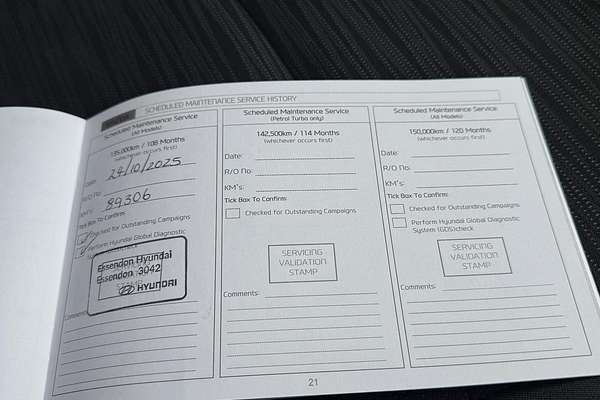 SCHEDULED MAINTENANCE SERVICE HISTORY
Scheduled Maintenance Service
(All Models)
135,000km / 108 Months
(whichever occurs first)
Date: 24/10/2025
R/O No:
KM's: 89306
Tick Box To Confirm:
Checked for Outstanding Campaigns
Perform Hyundai Global Diagnostic
check
Essendon Hyundai
Essendon 3042
HYUNDAI
Comments:
Scheduled Maintenance Service
(Petrol Turbo only)
142,500km / 114 Months
(whichever occurs first)
Date:
R/O No:
KM's:
Tick Box To Confirm:
Checked for Outstanding Campaigns
SERVICING
VALIDATION
STAMP
Comments:
Scheduled Maintenance Service
(All Models)
150,000km / 120 Months
(whichever occurs first)
Date:
R/O No:
KM's:
Tick Box To Confirm:
Checked for Outstanding Campaigns
Perform Hyundai Global Diagnostic
System (GDS)check
SERVICING
VALIDATION
STAMP
Comments:
21